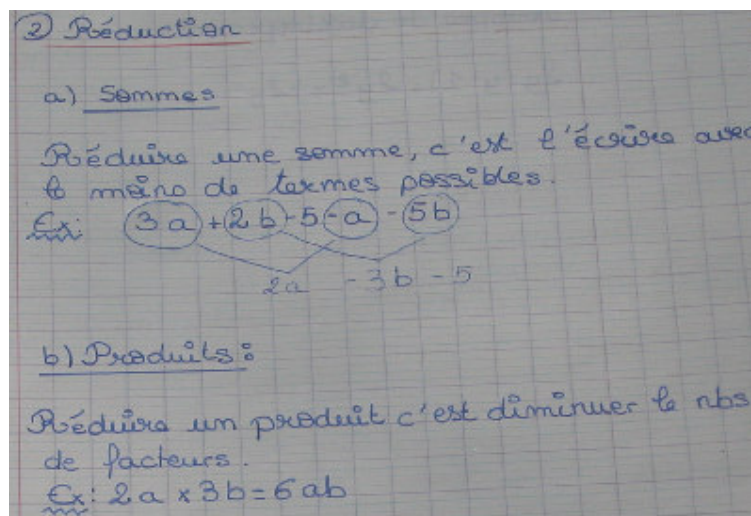 ② Réduction
a) Sommes
Réduire une somme, c'est l'écrire avec
le moins de termes possibles.
Ex: 3a + 2b - 5 - a - 5b
2a - 3b - 5
b) Produits :
Réduire un produit c'est diminuer le nbs
de facteurs.
Ex: 2a x 3b = 6ab